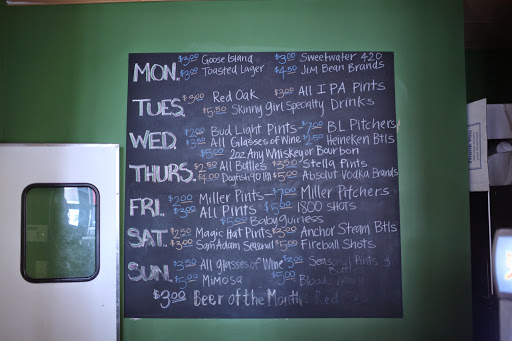 MON. $3.00 Goose Island $3.00 Sweetwater 420
$3.00 Toasted Lager $4.50 Jim Bean Brands
TUES. $3.00 Red Oak $3.00 All IPA Pints
$5.50 Skinny girl Specialty Drinks
WED. $2.00 Bud Light Pints - $7.00 BL Pitchers
$3.50 All Glasses of Wine $2.50 Heineken Btls
$5.00 2oz Any Whiskey or Bourbon
THURS. $2.50 All Bottles $3.50 Stella Pints
$4.00 Dogfish 90 Min $5.00 Absolut Vodka Brands
FRI. $2.00 Miller Pints - $7.00 Miller Pitchers
$3.00 All Pints $5.00 1800 Shots
$5.00 Baby guiness
SAT. $2.50 Magic Hat Pints $3.00 Anchor Steam Btls
$3.00 Sam Adam Seasonal $5.00 Fireball Shots
SUN. $3.50 All glasses of Wine $3.00 Seasonal Pints &
Bottles
$5.00 Mimosa $5.00 Bloody
$3.00 Beer of the Month: Red